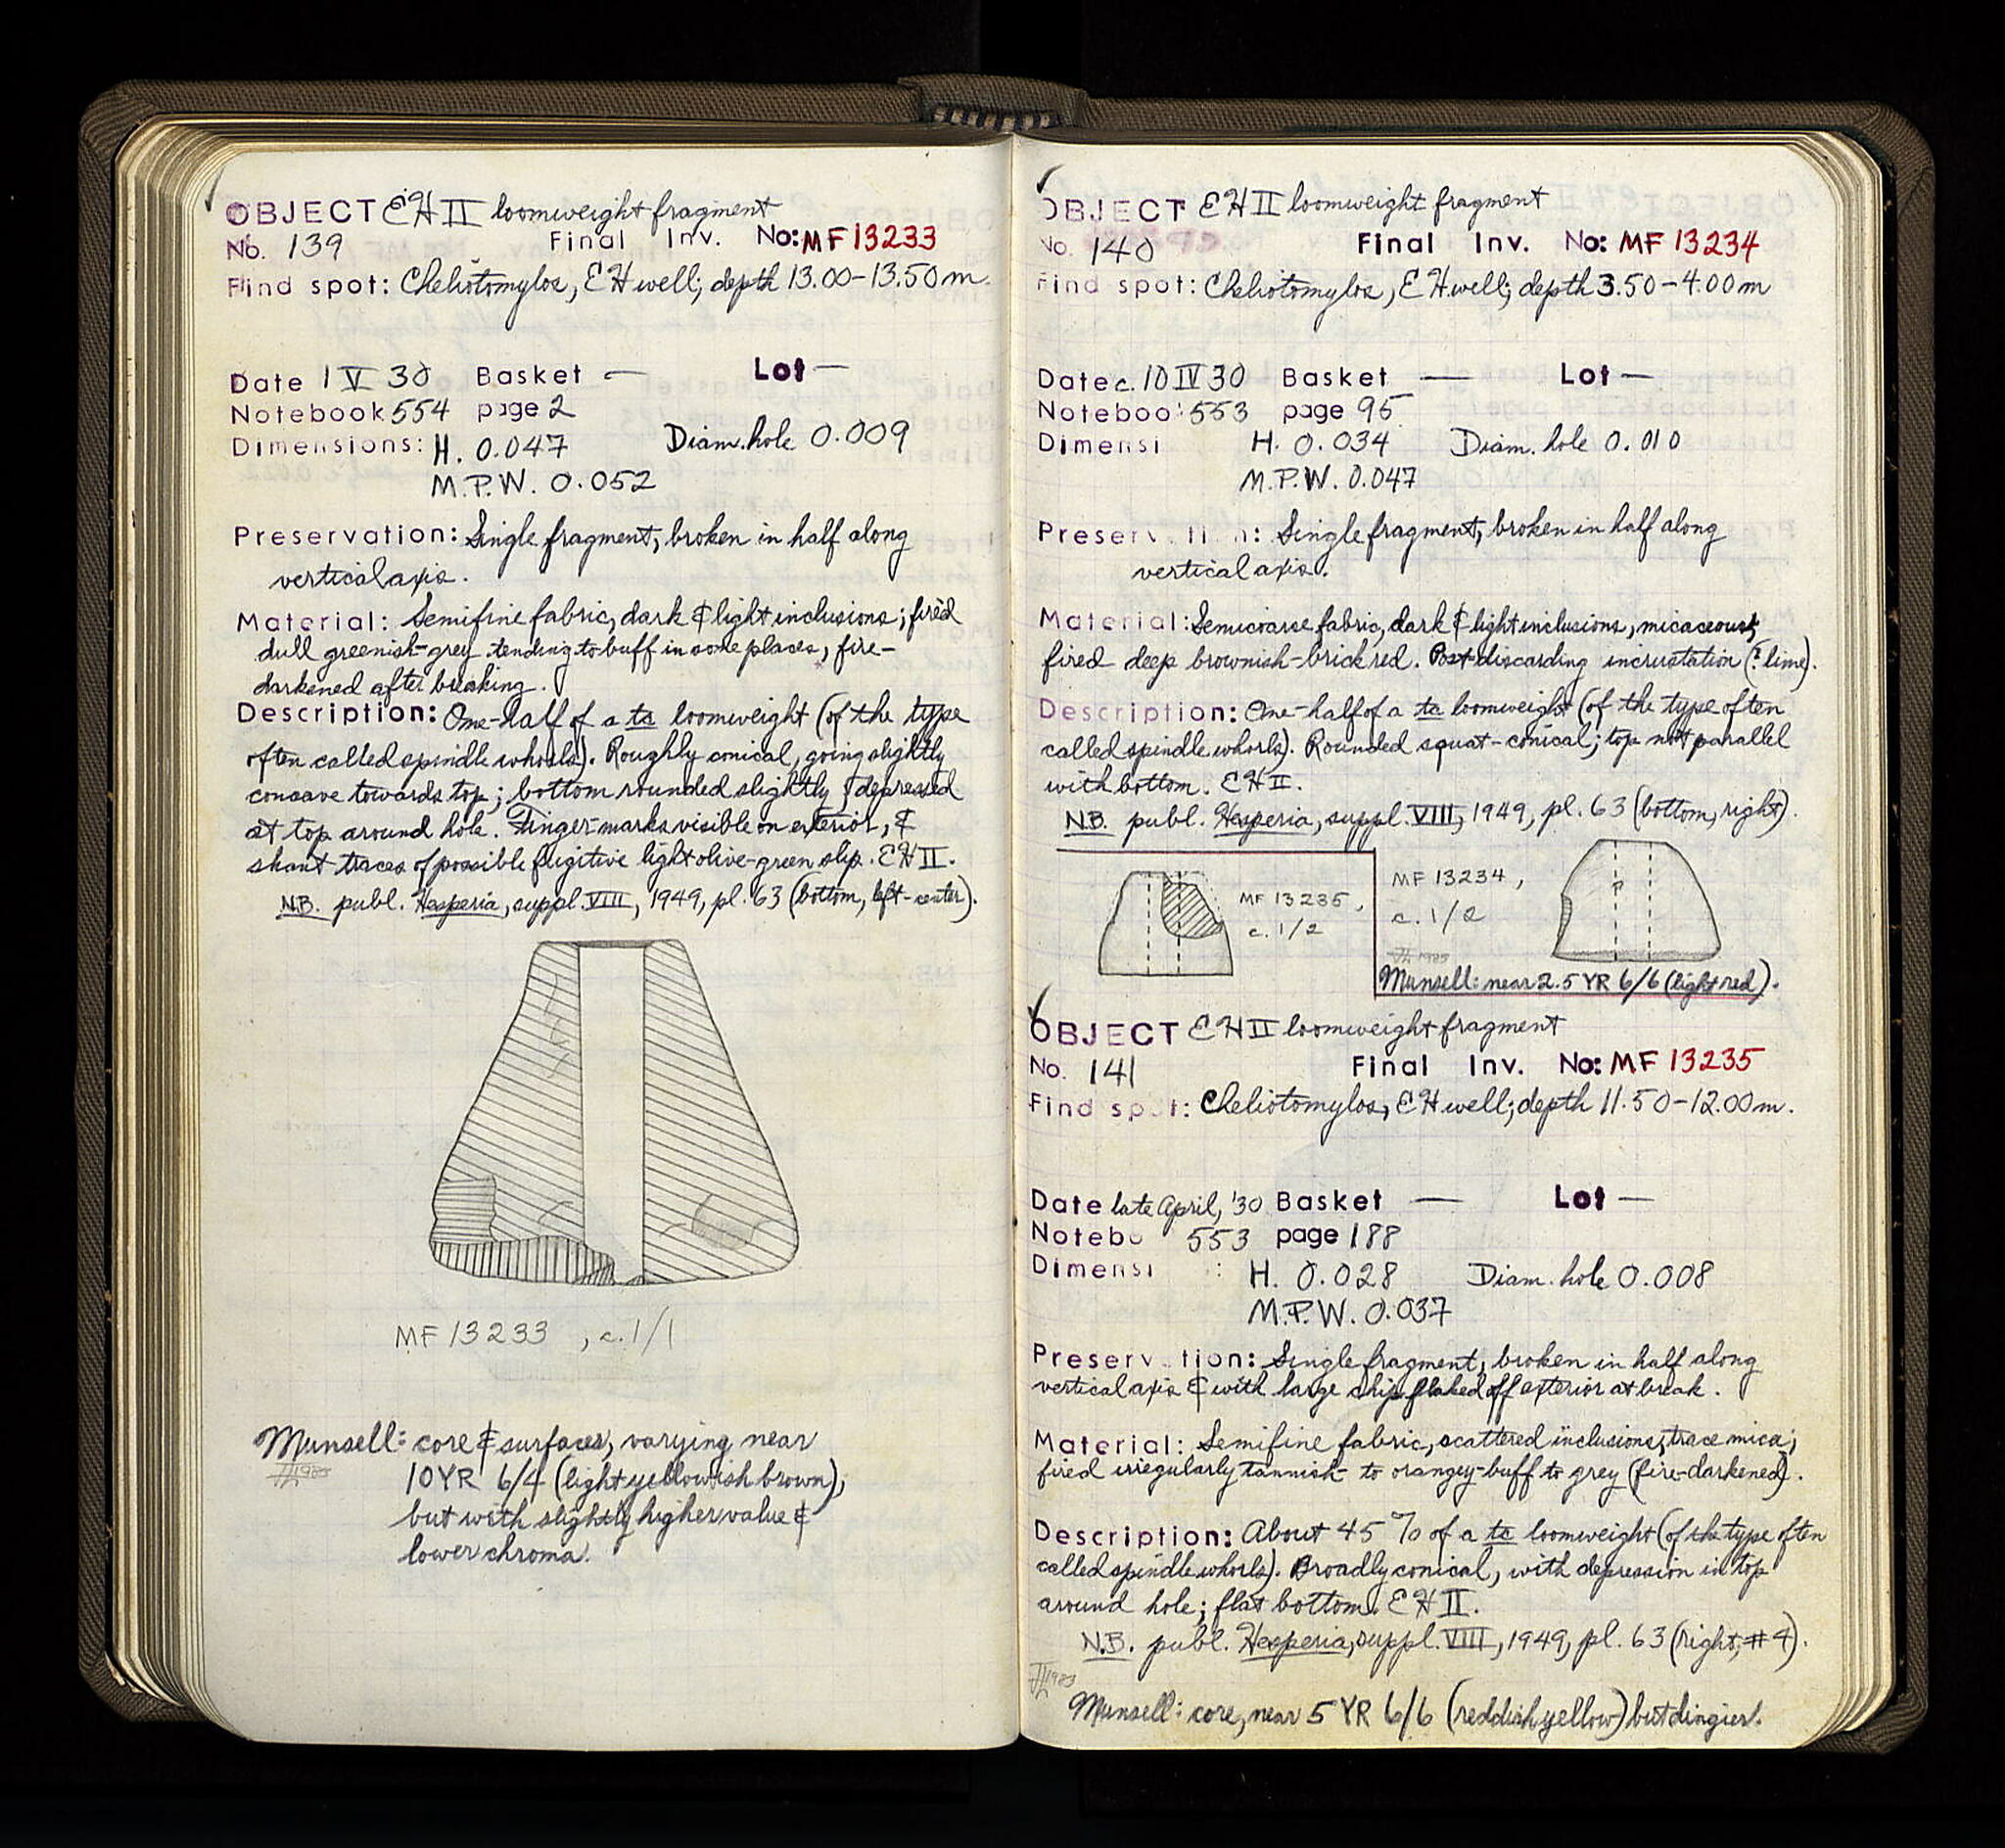 OBJECT EH II loomweight fragment
No. 139 Final Inv. No: MF 13233
Find spot: Cheliotomylos, EH well; depth 13.00-13.50 m.
Date 1 V 30 Basket — Lot —
Notebook 554 page 2
Dimensions: H. 0.047 Diam. hole 0.009
M.P.W. 0.052
Preservation: Single fragment, broken in half along
vertical axis.
Material: Semifine fabric, dark & light inclusions; fired
dull greenish-grey tending to buff in some places, fire-
darkened after breaking.
Description: One-half of a tc loomweight (of the type
often called spindle whorls). Roughly conical, going slightly
concave towards top; bottom rounded slightly & depressed
at top around hole. Finger-marks visible on exterior, &
skant traces of possible fugitive light olive-green slip. EH II.
N.B. publ. Hesperia, suppl. VIII, 1949, pl. 63 (bottom, left-center).
MF 13233 , c. 1/1
Munsell: core & surfaces, varying near
1985
10YR 6/4 (light yellowish brown),
but with slightly higher value &
lower chroma.
OBJECT EH II loomweight fragment
No. 140 Final Inv. No: MF 13234
Find spot: Cheliotomylos, EH well; depth 3.50-4.00 m
Date c. 10 IV 30 Basket — Lot —
Noteboo 553 page 95
Dimensi H. 0.034 Diam. hole 0.010
M.P.W. 0.047
Preserv ti n: Single fragment, broken in half along
vertical axis.
Material: Semicoarse fabric, dark & light inclusions, micaceous,
fired deep brownish-brick red. Post-discarding incrustation (? lime).
Description: One-half of a tc loomweight (of the type often
called spindle whorls). Rounded squat-conical; top not parallel
with bottom. EH II.
N.B. publ. Hesperia, suppl. VIII, 1949, pl. 63 (bottom, right).
MF 13235,
c. 1/2
MF 13234,
c. 1/2
1985
Munsell: near 2.5 YR 6/6 (light red).
OBJECT EH II loomweight fragment
No. 141 Final Inv. No: MF 13235
Find sp t: Cheliotomylos, EH well; depth 11.50-12.00 m.
Date late April, '30 Basket — Lot —
Notebo 553 page 188
Dimensi : H. 0.028 Diam. hole 0.008
M.P.W. 0.037
Preserv tion: Single fragment, broken in half along
vertical axis & with large chip flaked off exterior at break.
Material: Semifine fabric, scattered inclusions, trace mica;
fired irregularly tannish- to orangey-buff to grey (fire-darkened).
Description: About 45 % of a tc loomweight (of the type often
called spindle whorls). Broadly conical, with depression in top
around hole; flat bottom. EH II.
N.B. publ. Hesperia, suppl. VIII, 1949, pl. 63 (right, # 4).
1985
Munsell: core, near 5 YR 6/6 (reddish yellow) but dingier.